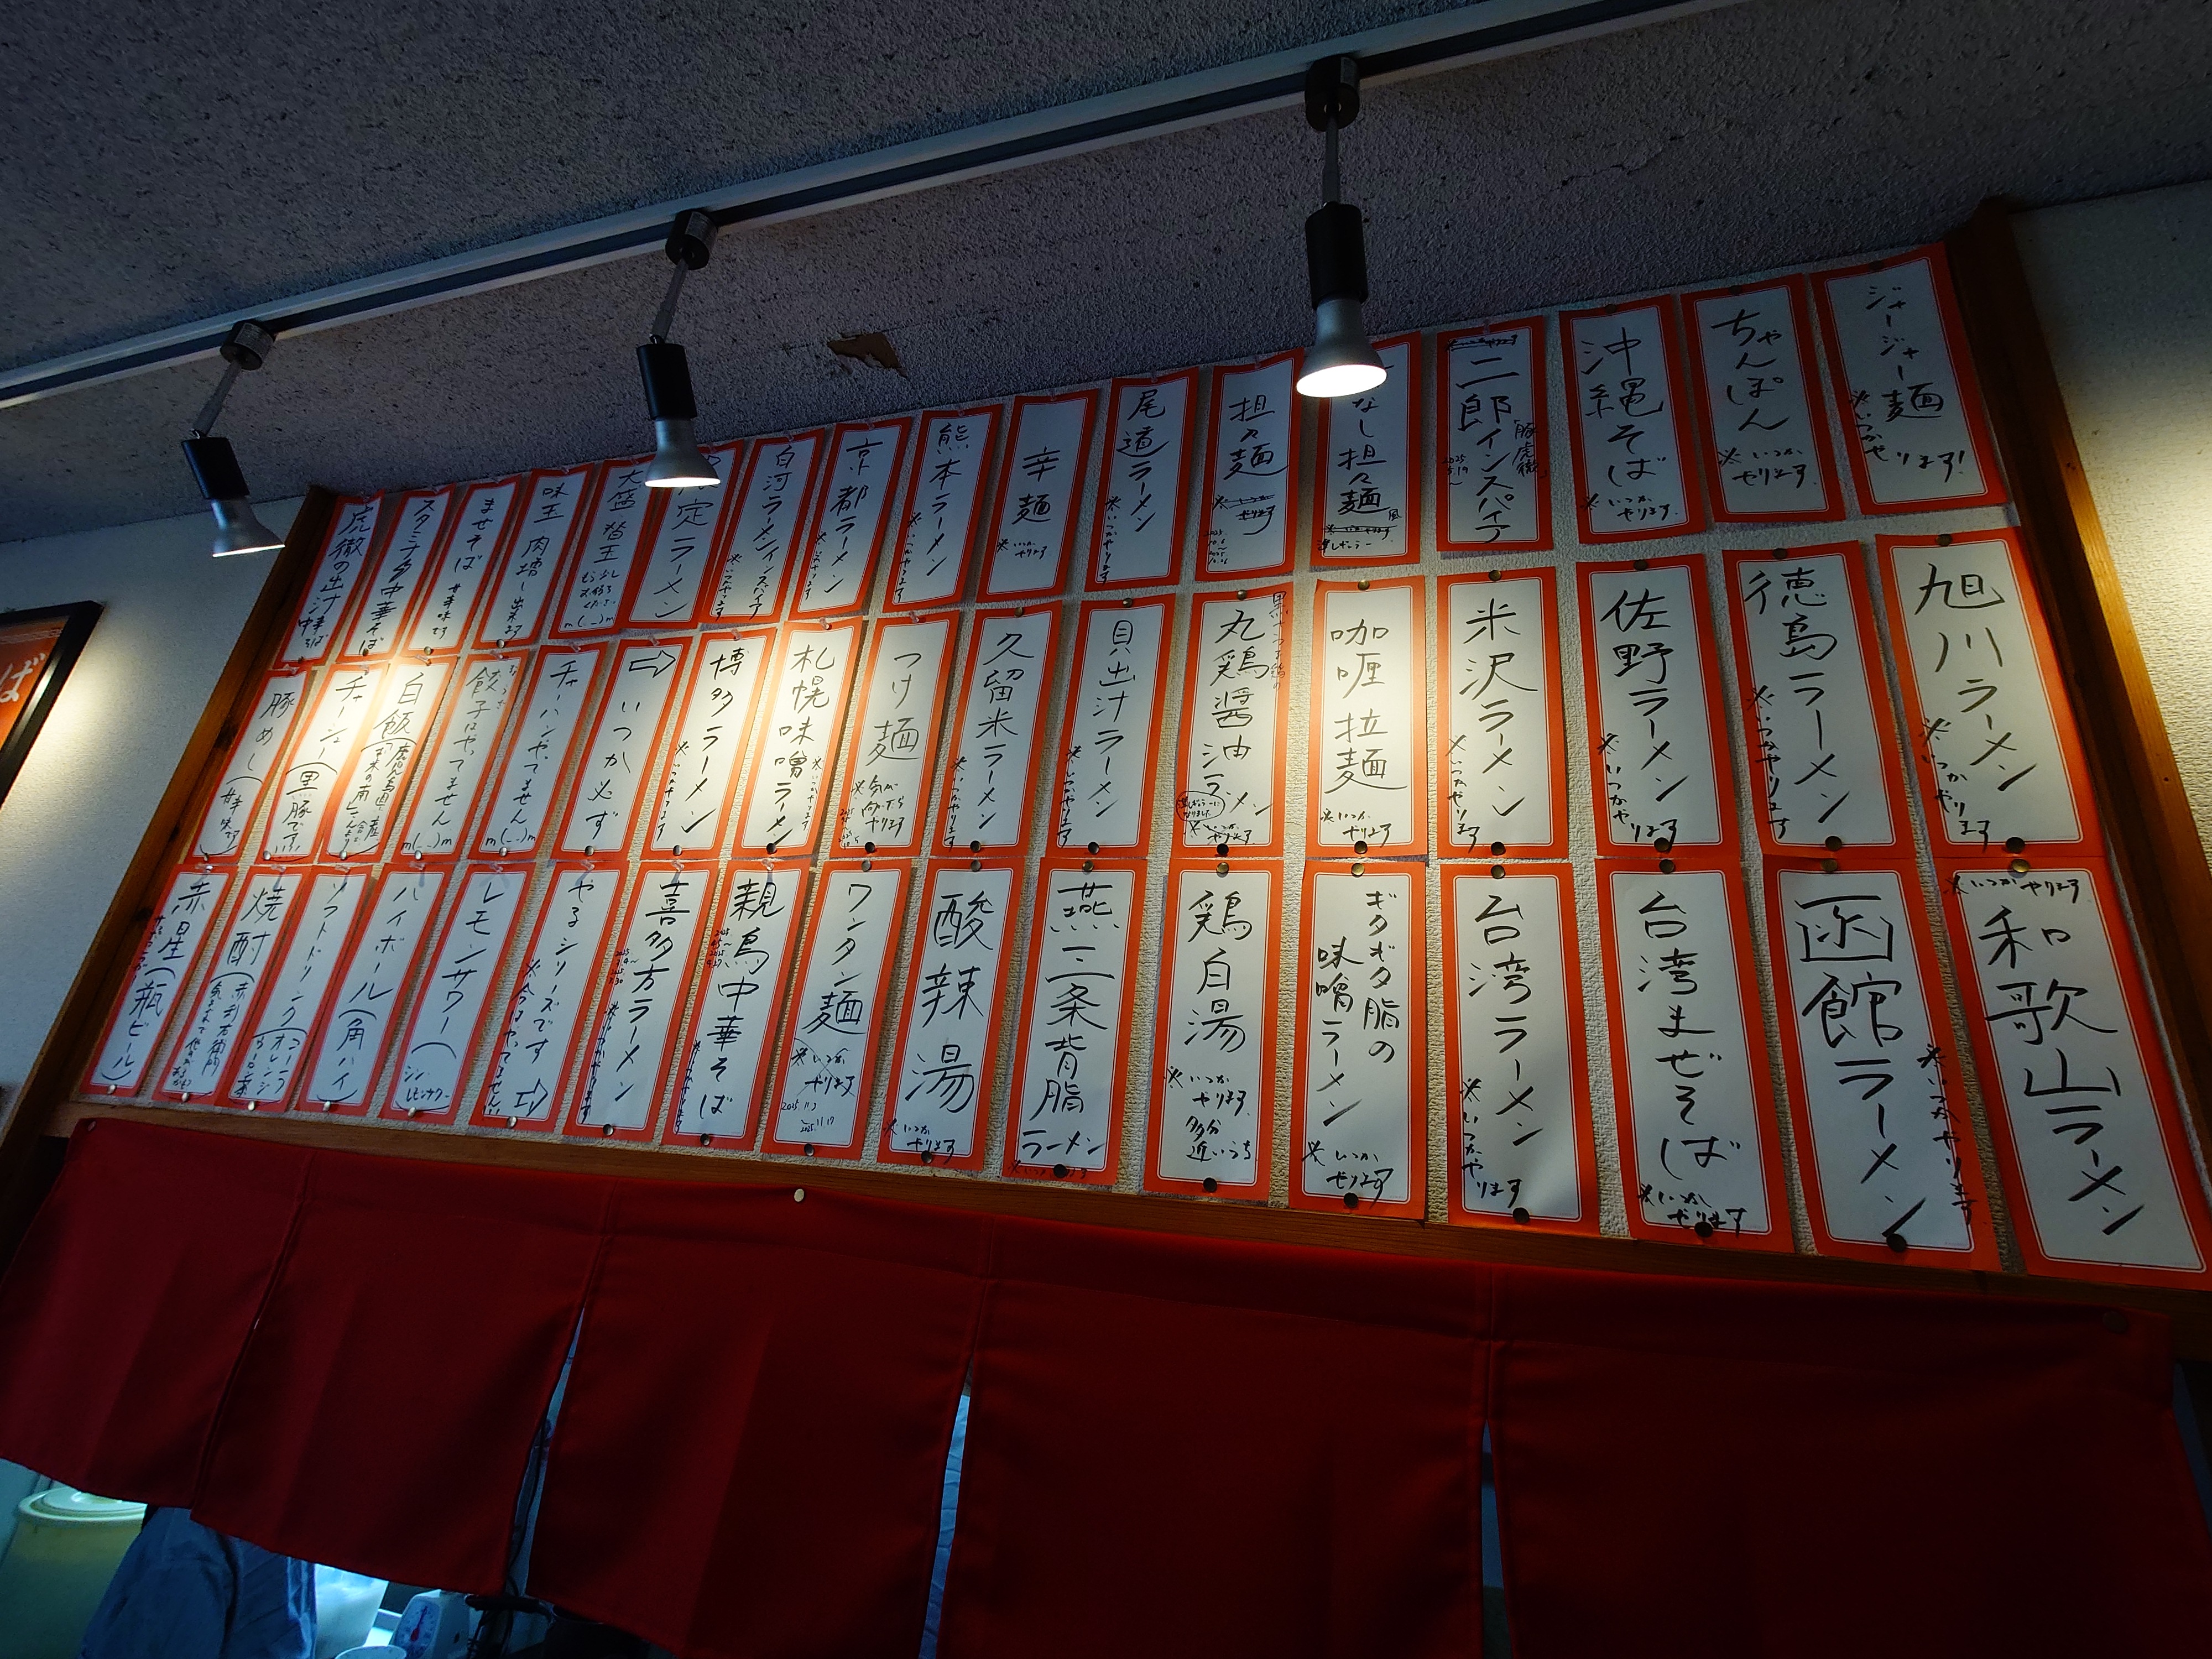 虎徹の出汁中華そば
スタミナ中華そば
まぜそば
甘辛味です
味玉
肉増し出来ます
大盛
替玉
もうふし
お待ち
ください
m(_ _)m
定ラーメン
白河ラーメンインスパイア
※いつかやります
京都ラーメン
※いつかやります
熊本ラーメン
※いつかやります
辛麺
※いつか
やります
尾道ラーメン
※いつかやります
担々麺
なし担々麺
風
二郎インスパイア
「豚虎徹」
沖縄そば
※いつか
やります
ちゃんぽん
※いつか
やります
ジャージャー麺
※いつかやります!
豚めし(甘辛味です)
チャーシュー(黒豚です)
白飯
餃子はやってません
m(_ _)m
チャーハンやってません
m(_ _)m
⇨いつか必ず
博多ラーメン
※いつかやります
札幌味噌ラーメン
※いつかやります
つけ麺
※気が
向いたら
やります
久留米ラーメン
※いつかやります
貝出汁ラーメン
※いつかやります
丸鶏醤油ラーメン
※いつか
やります
咖喱拉麺
※いつか
やります
米沢ラーメン
※いつかやります
佐野ラーメン
※いつかやります
徳島ラーメン
※いつかやります
旭川ラーメン
※いつかやります
赤星(瓶ビール)
焼酎
ソフトドリンク
コーラ
オレンジ
ウーロン茶
ハイボール(角ハイ)
レモンサワー
やるシリーズです⇨
※今はやってません
喜多方ラーメン
※いつかやります
親鳥中華そば
ワンタン麺
※いつか
やります
2025.11.3
2025.11.17
酸辣湯
※いつか
やります
燕三条背脂ラーメン
鶏白湯
※いつか
やります
多分
近いうち
ギタギタ脂の
味噌ラーメン
※いつか
やります
台湾ラーメン
※いつかやります
台湾まぜそば
※いつか
やります
函館ラーメン
※いつかやります
※いつかやります
和歌山ラーメン
ば